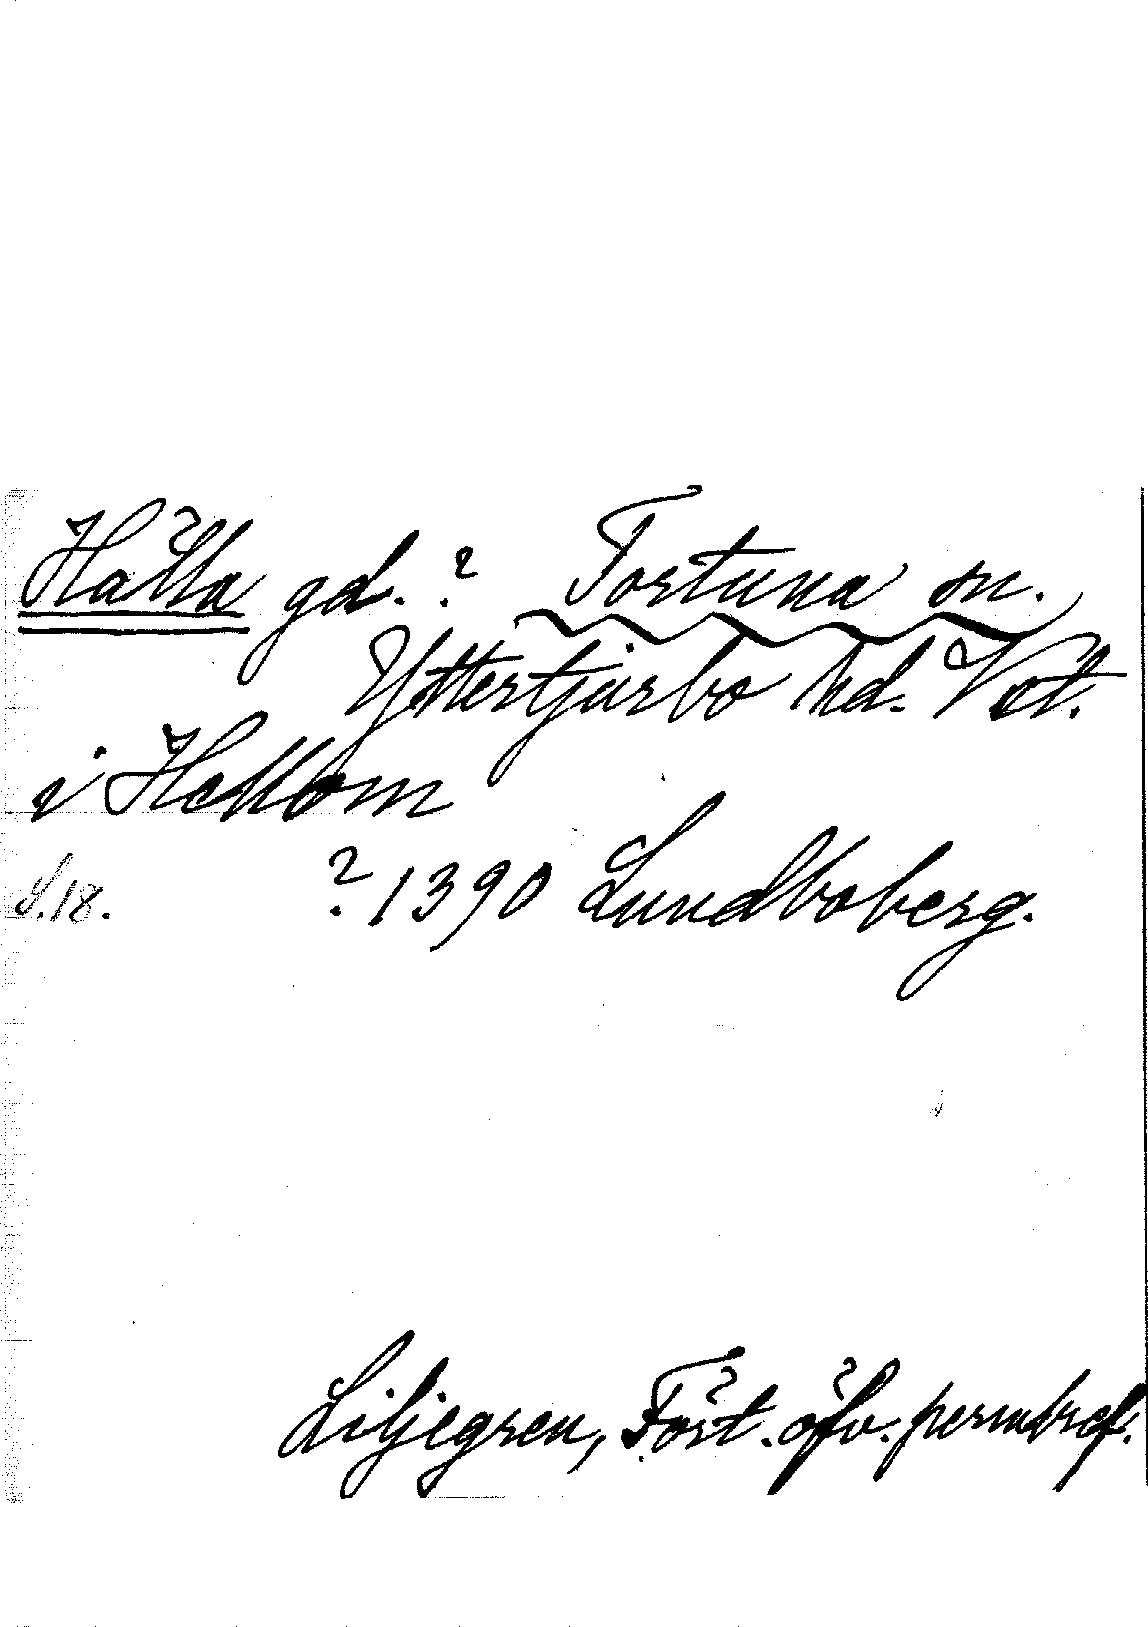 Hälla gd. ? Tortuna sn.
Yttertjurbo hd. Vst.
i Hellom
S. 18. ? 1390 Lundboberg.
Liljegren, Fört. öfv. permbref.